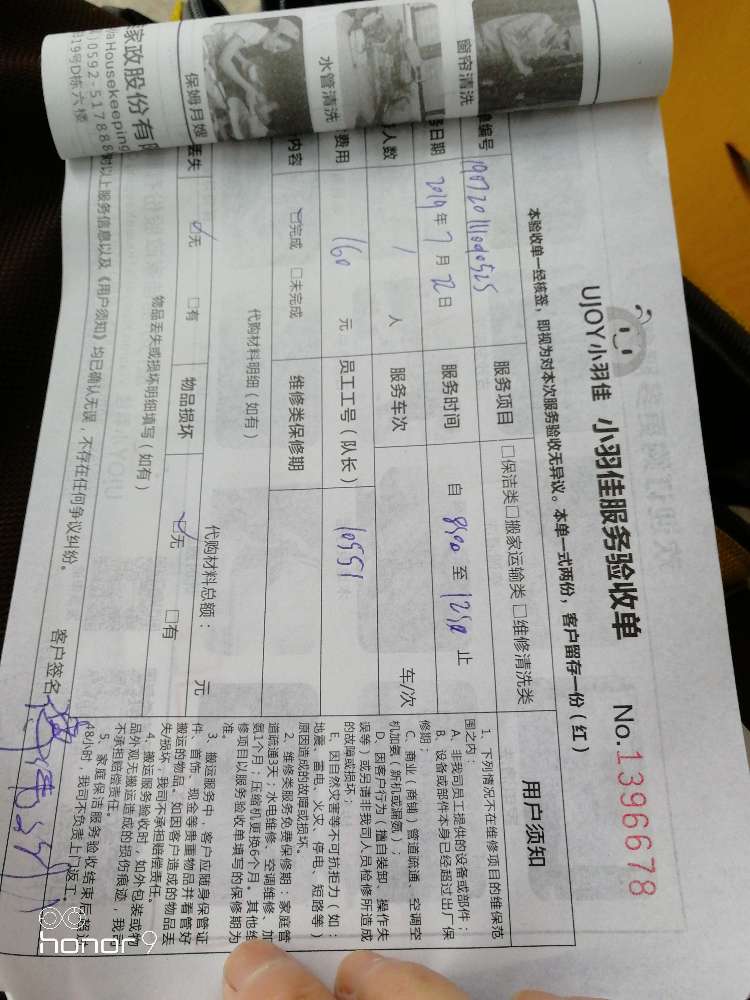 UJOY小羽佳 小羽佳服务验收单 No.1396678
本验收单一经核签，即视为对本次服务验收无异议。本单一式两份，客户留存一份（红）
编号 服务项目 □保洁类□搬家运输类□维修清洗类
日期 2019年7月22日 服务时间 自 8:00 至 12:00 止
人数 1 人 服务车次 车/次
费用 160 元 员工工号（队长） 10551
内容 ☑完成 □未完成 维修类保修期
代购材料明细（如有） 代购材料总额： 元
丢失 ☑无 □有 物品损坏 ☑无 □有
物品丢失或损坏明细填写（如有）
对以上服务信息以及《用户须知》均已确认无误，不存在任何争议纠纷。
客户签名
用户须知
1、下列情况不在维修项目的维保范
围之内：
A、非我司员工提供的设备或部件；
B、设备或部件本身已经超过出厂保
修期；
C、商业（商铺）管道疏通、空调空
机加氨（新机或漏氨）；
D、因客户行为（擅自装卸、操作失
误等）或另请非我司人员检修所造成
的故障或损坏；
E、因自然灾害等不可抗拒力（如：
地震、雷电、火灾、停电、短路等）
原因造成的故障或损坏。
2、维修类服务免费保修期：家庭管
道疏通3天；水电维修、空调维修、加
氨1个月；压缩机更换6个月。其他维
修项目以服务验收单填写的保修期为
准。
3、搬运服务中，客户应随身保管证
件、首饰、现金等贵重物品并看管好
搬运的物品，如因客户造成的物品丢
失/损坏，我司不承担赔偿责任。
4、搬运服务验收时，如外包装或物
品外观无搬运造成的损伤痕迹，我司
不承担赔偿责任。
5、家庭保洁服务验收结束后超过
48小时，我司不负责上门返工。
窗帘清洗
水管清洗
保姆月嫂
家政股份有限
Housekeeping
)0592-517888
319号D栋六楼
honor 9